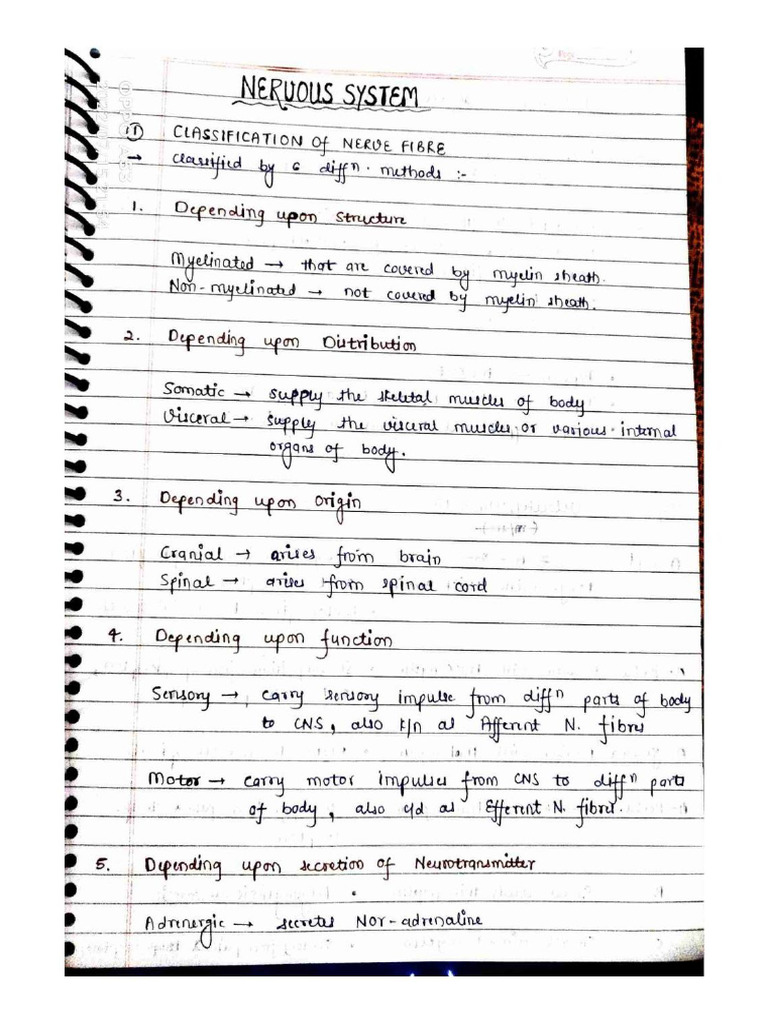 NERVOUS SYSTEM
① CLASSIFICATION of NERVE FIBRE
→ classified by 6 diffn. methods :-
1. Depending upon structure
Myelinated → that are covered by myelin sheath.
Non-myelinated → not covered by myelin sheath.
2. Depending upon Distribution
Somatic → supply the skeletal muscles of body
Visceral → supply the visceral muscles or various internal
organs of body.
3. Depending upon origin
Cranial → arises from brain
Spinal → arises from spinal cord
4. Depending upon function
Sensory → carry sensory impulse from diffn parts of body
to CNS, also k/n as Afferent N. fibres
Motor → carry motor impulses from CNS to diffn parts
of body, also c/d as Efferent N. fibres.
5. Depending upon secretion of Neurotransmitter
Adrenergic → secretes Nor-adrenaline